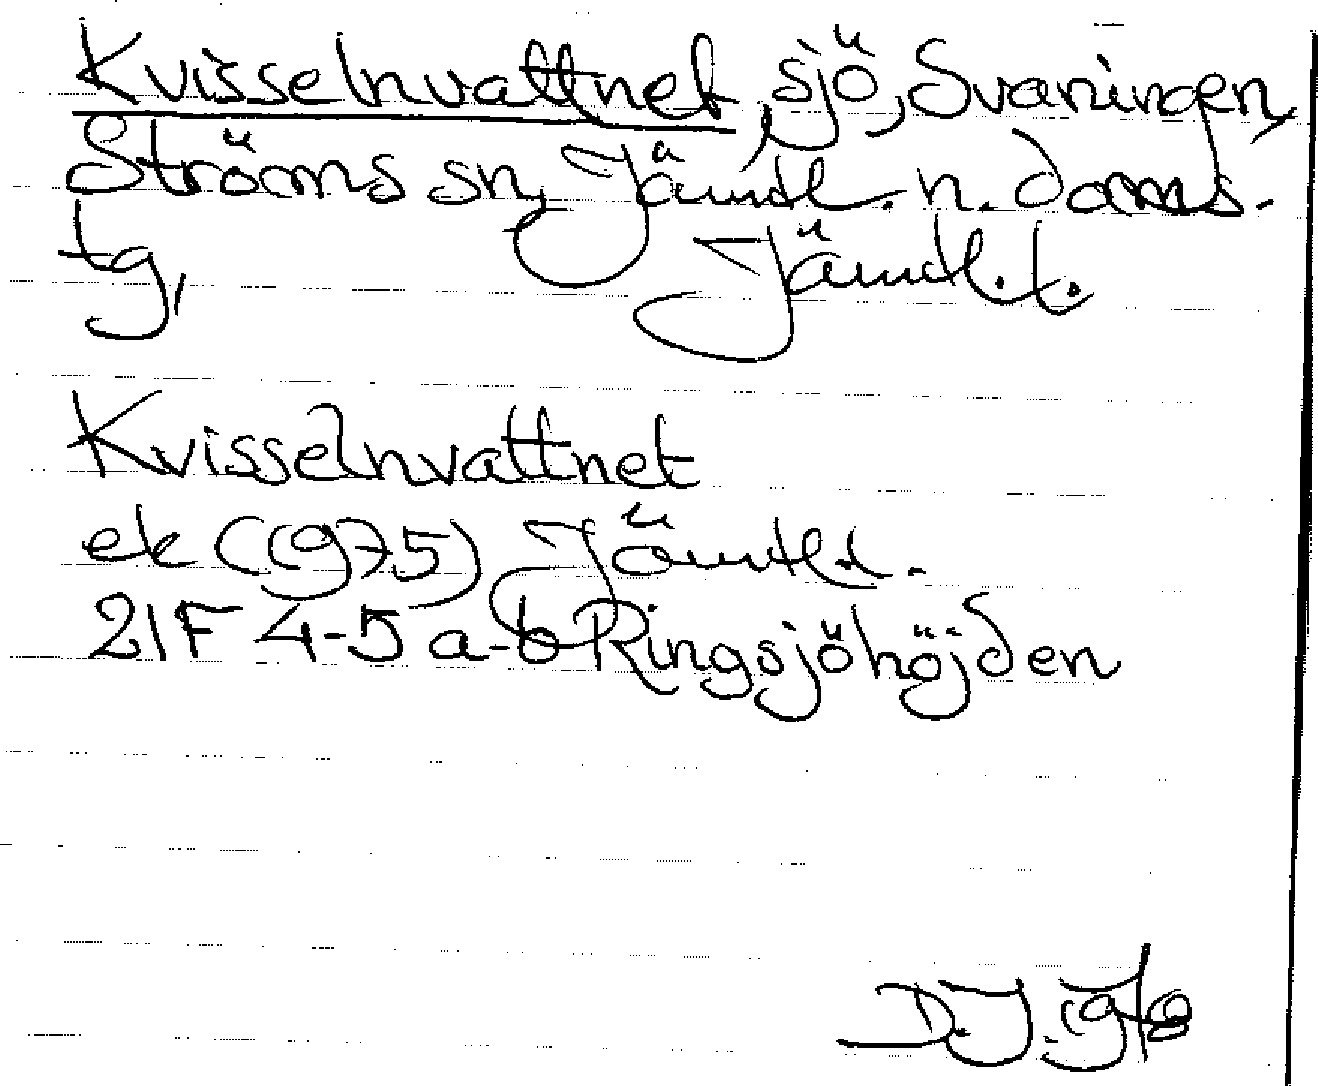 Kvisselnvattnet, sjö, Svaningen,
Ströms sn, Jämtl. n. doms-
tg, Jämtl. l.
Kvisselnvattnet
ek (1975) Jämtl. l.
21F 4-5 a-b Ringsjöhöjden
D.J.